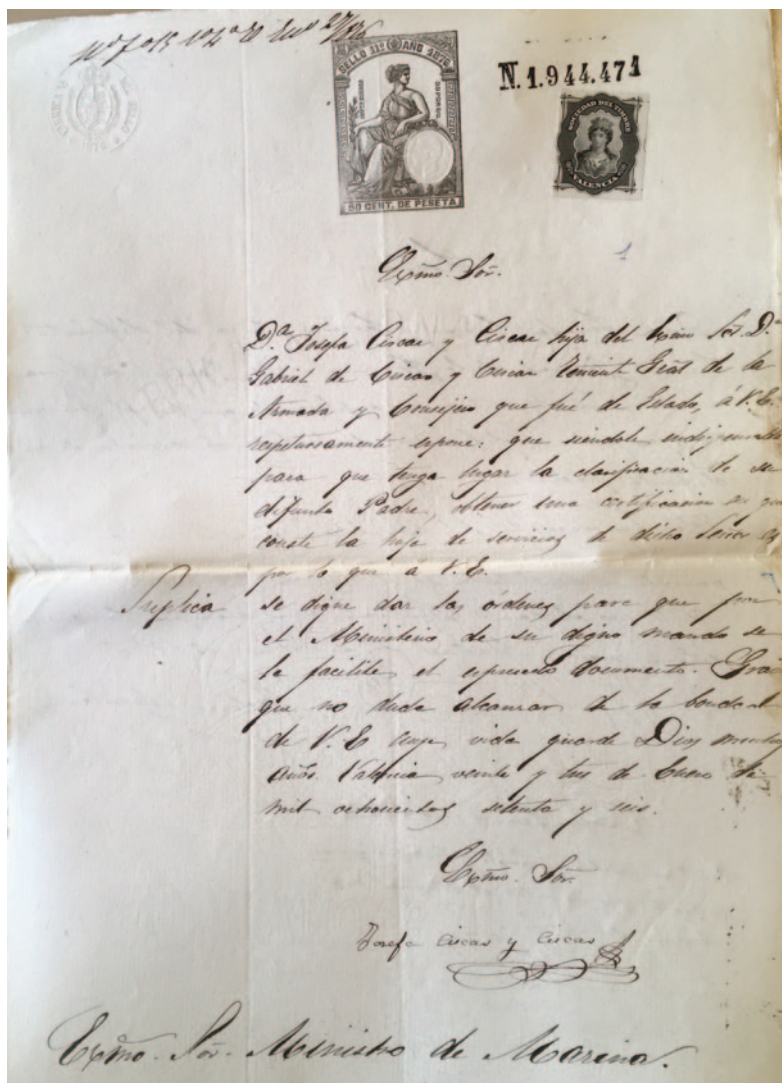 SELLO 11º AÑO 1876
50 CENT. DE PESETA
N. 1.944.471
SOCIEDAD DEL TIMBRE
VALENCIA
1
Exmo. Sor.
D.ª Josefa Ciscar y Ciscar hija del Exmo Sor. D.n
Gabriel de Ciscar y Ciscar Teniente Gral de la
Armada y Consejero que fué de Estado, á V.E.
respetuosamente espone: que siendole indispensable
para que tenga lugar la clasificacion de su
difunto Padre, obtener una certificacion en que
conste la hoja de servicios de dicho Señor es
por lo que á V. E.
Suplica
se digne dar las órdenes para que por
el Ministerio de su digno mando se
le facilite el espresado documento. Gracia
que no duda alcanzar de la bondad
de V.E. cuya vida guarde Dios muchos
años. Valencia veinte y tres de Enero de
mil ochocientos setenta y seis.
Exmo. Sor.
Josefa Ciscar y Ciscar
Exmo. Sor. Ministro de Marina.